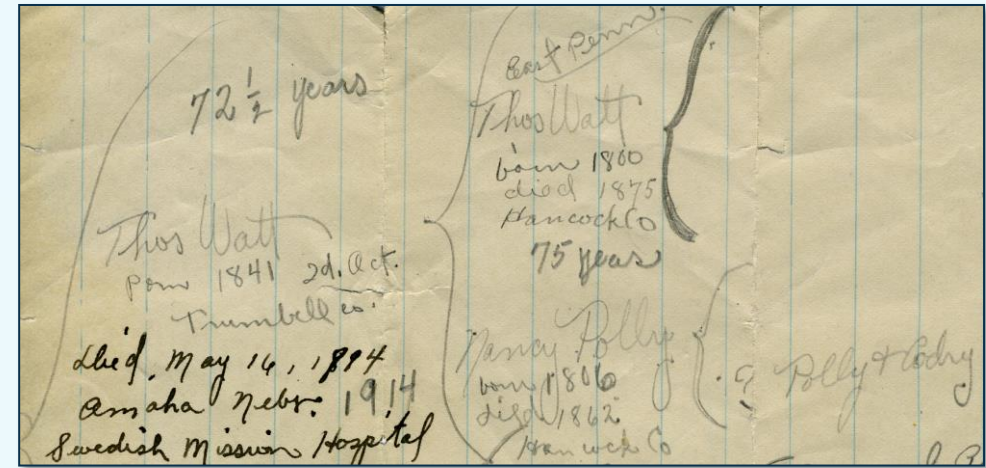 72 1/2 years
Thos Watt
born 1841 2d. Oct.
Trumbell co.
Died, May 16, 1894
Omaha Nebr. 1914
Swedish Mission Hospital
East Penn.
Thos Watt
born 1800
died 1875
Hancock Co
75 years
Nancy Polly
born 1806
died 1862
Hancock Co
Polly & Codry